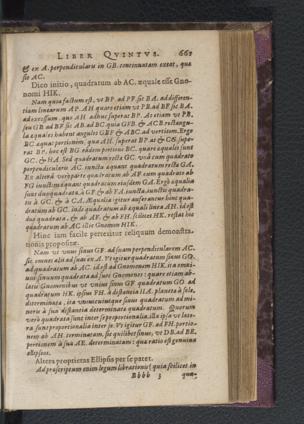 LIBER QVINTVS. 661
& ex A. perpendicularis in GB. continuatam exeat, quæ
sit AC.
Dico initio, quadratum ab AC. æquale esse Gno-
nomi HIK.
Nam quia factum est, vt BP. ad PF sic BA. ad differen-
tiam linearum AP. AH quare etiam vt PB ad BF sic BA.
ad excessum, quo AH adhuc superat BP. At etiam vt PB,
seu GB ad BF sic AB ad BC quia GFB. & ACB rectangu-
la æquales habent angulos GBF & ABC ad verticem. Ergo
BC æquat portionem, qua AH. superat BP at & CG supe-
rat BP. hoc est BG eâdem portione BC. quare æquales sunt
GC. & HA Sed quadratum rectæ GC. vnà cum quadrato
perpendicularis AC. iunctæ æquant quadratum rectæ GA.
Ex alterâ verò parte quadratum ab AF cum quadrato ab
FG iunctum æquant quadratum eiusdem GA. Ergo æqualia
sunt duo quadrata à GF & ab FA. iuncta, iunctis quadra-
tis à GC. & à CA. Æqualia igitur auferantur hinc qua-
dratum ab GC. inde quadratum ab æquali linea AH. id est
duo quadrata, & ab AF. & ab FH. scilicet HK. restat hoc
quadratum ab AC illic Gnomon HIK.
Hinc iam facile perficitur reliquum demonstra-
tionis propositæ.
Nam vt vnus sinus GF. ad suam perpendicularem AC.
sic omnes alij ad suas ex A. Vt igitur quadratum sinus GO.
ad quadratum ab AC. id est ad Gnomonem HIK, ita omni-
um sinuum quadrata ad suos Gnomones: quare etiam ab-
latis Gnomonibus vt vnius sinus GF quadratum GO. ad
quadratum HK. ipsius FH. à distantia HA planetæ à sole,
determinata, ita vniuscuiusque sinus quadratum ad mi-
noris à sua distantia determinata quadratum. Quorum
verò quadrata sunt inter se proportionalia, illa ipsa vt late-
ra sunt proportionalia inter se. Vt igitur GF. ad FH. portio-
nem ab AH. terminatam, sic quilibet sinus, vt DB. ad BE,
portionem à sua AE. determinatam: qua ratio est genuina
ellipsios.
Altera proprietas Ellipsis per se patet.
Ad præscriptum enim legum librationis (quia scilicet in
Bbbb 3 qua-